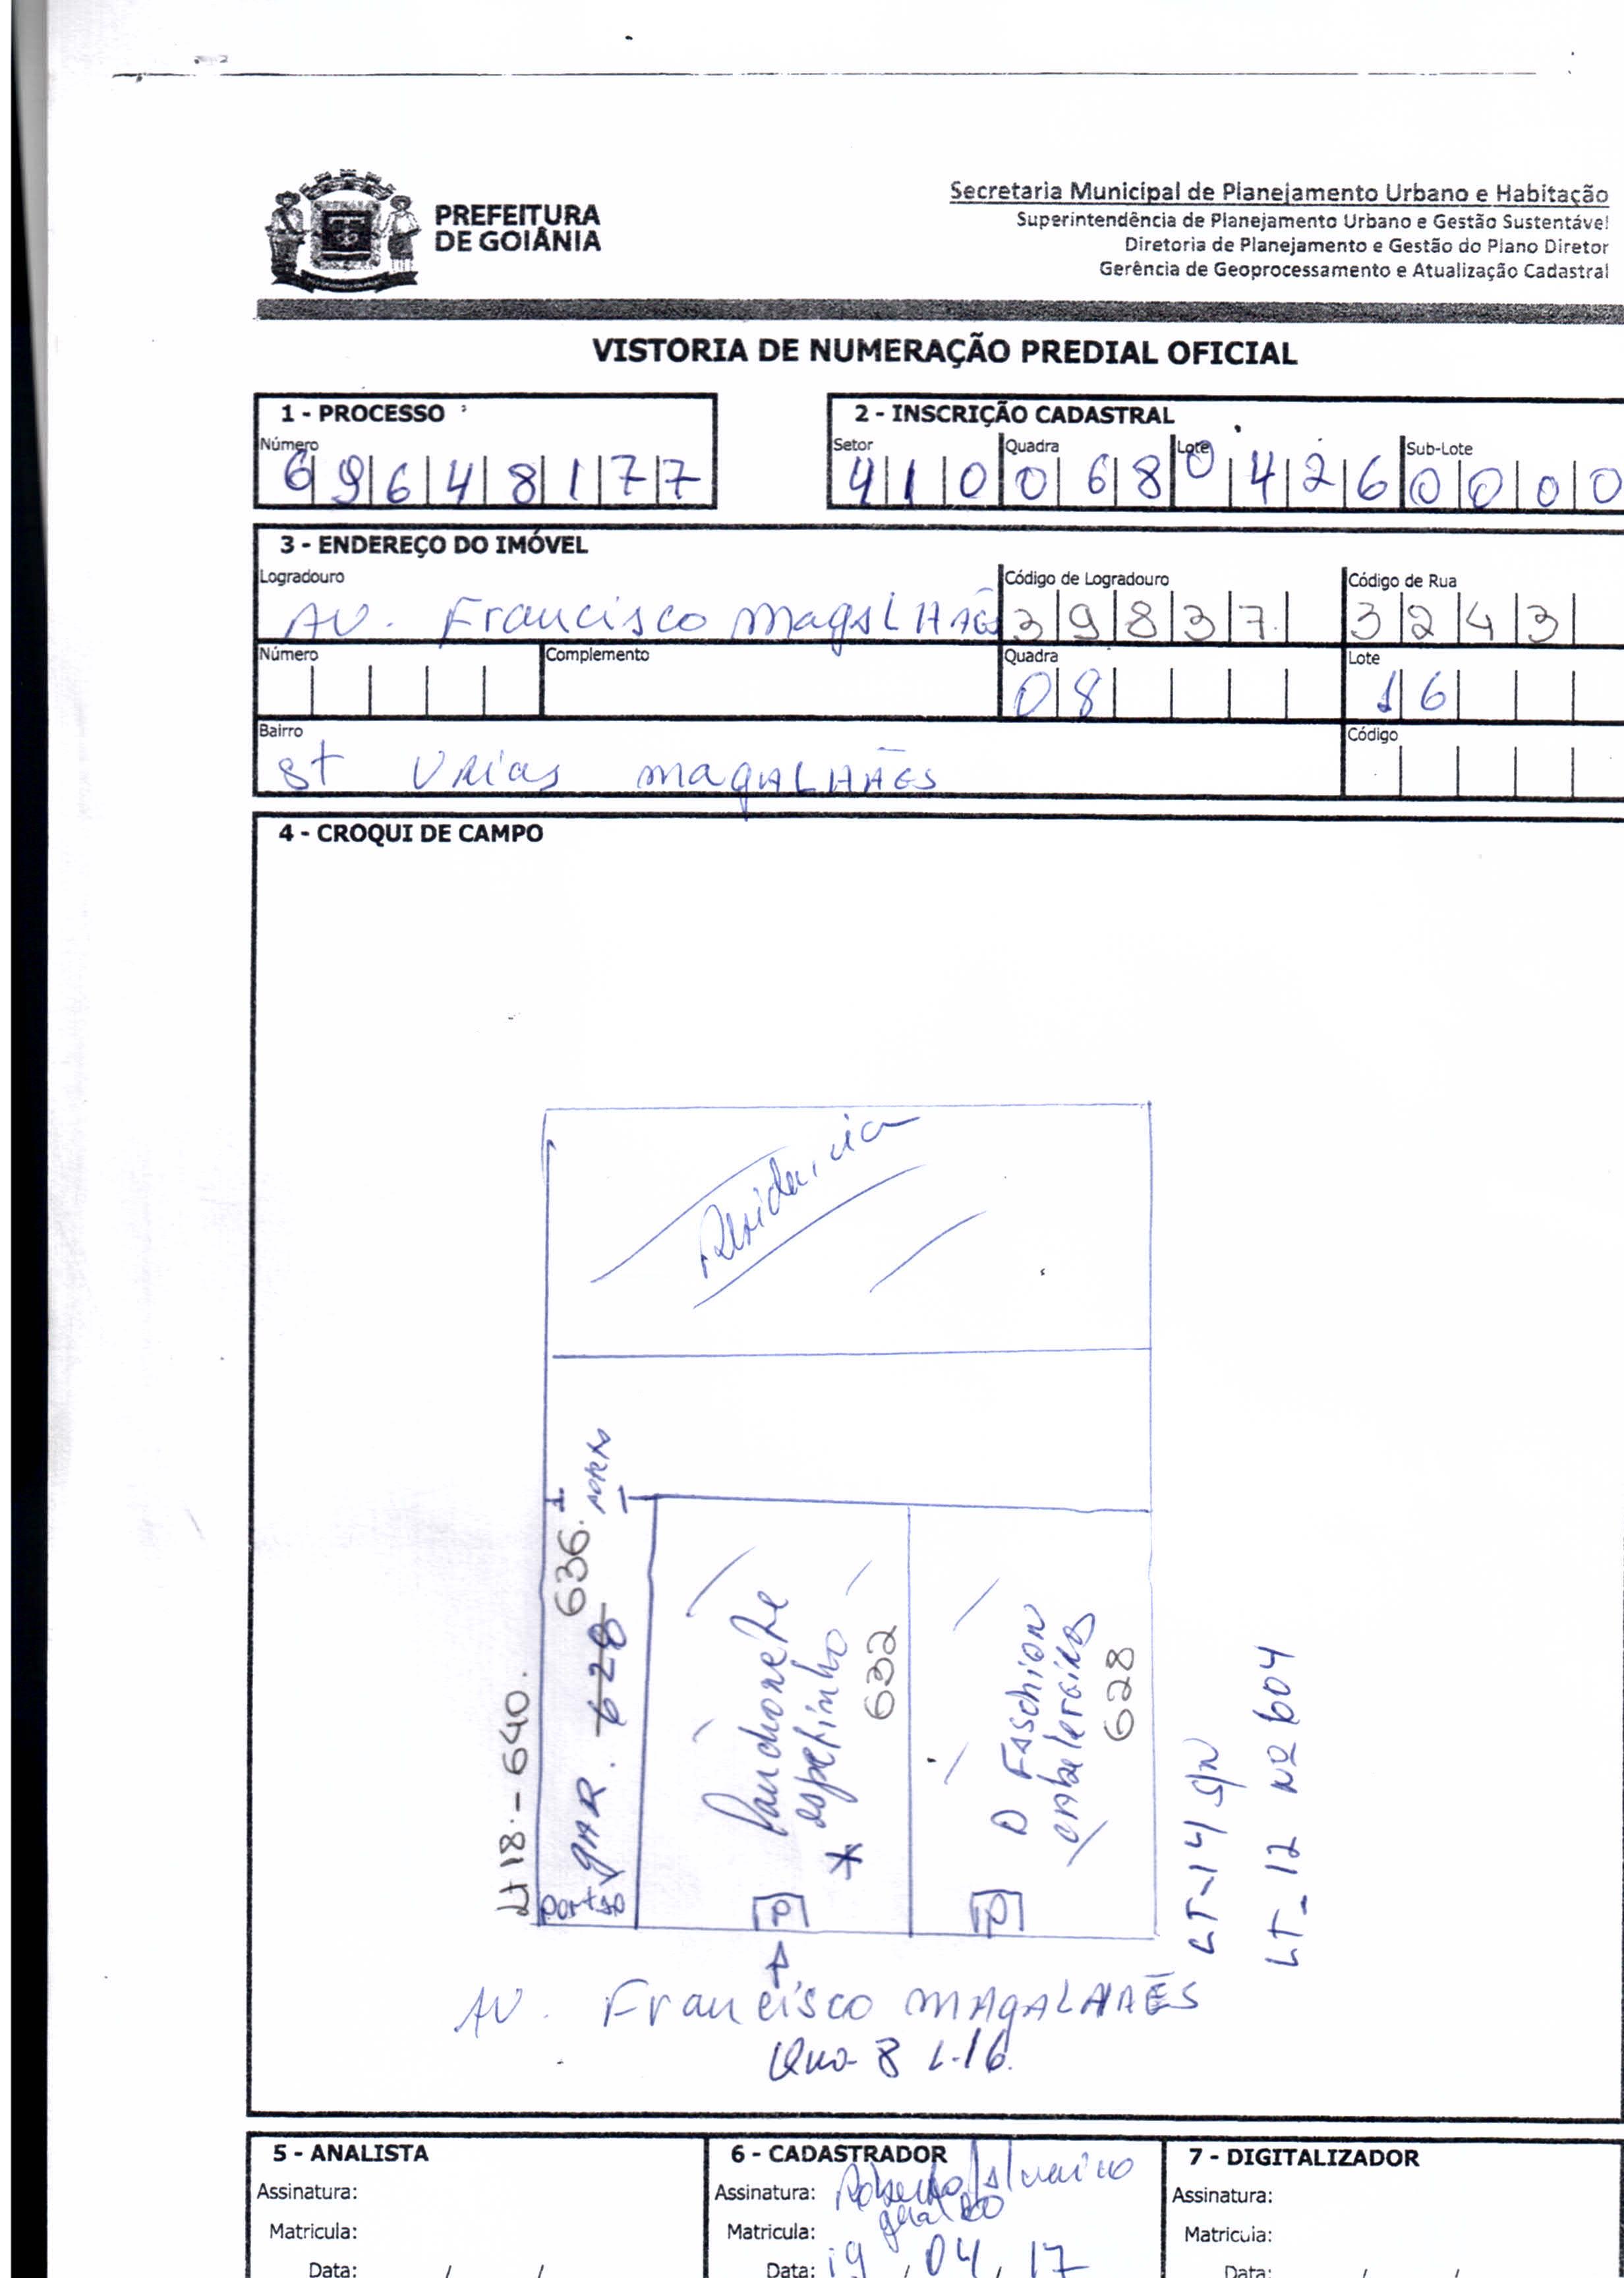 PREFEITURA
DE GOIÂNIA
Secretaria Municipal de Planejamento Urbano e Habitação
Superintendência de Planejamento Urbano e Gestão Sustentável
Diretoria de Planejamento e Gestão do Plano Diretor
Gerência de Geoprocessamento e Atualização Cadastral
VISTORIA DE NUMERAÇÃO PREDIAL OFICIAL
1 - PROCESSO
Número
69648177
2 - INSCRIÇÃO CADASTRAL
Setor Quadra Lote Sub-Lote
410 068 0426 0000
3 - ENDEREÇO DO IMÓVEL
Logradouro Código de Logradouro Código de Rua
AV. Francisco MagaLHÃES 39837 3243
Número Complemento Quadra Lote
08 16
Bairro Código
St Urias magALHÃES
4 - CROQUI DE CAMPO
Residencia
Lt 18 - 640.
636.
gAR. 628
espetinho
632
D Faschion
628
LT-14 S/N
LT-12 Nº 604
P
P
AV. Francisco MAgALHÃES
Qua- 8 L-16.
5 - ANALISTA
Assinatura:
Matricula:
Data: / /
6 - CADASTRADOR
Assinatura: Roberto
Matricula:
Data: 19 / 04 / 17
7 - DIGITALIZADOR
Assinatura:
Matricula:
Data: / /